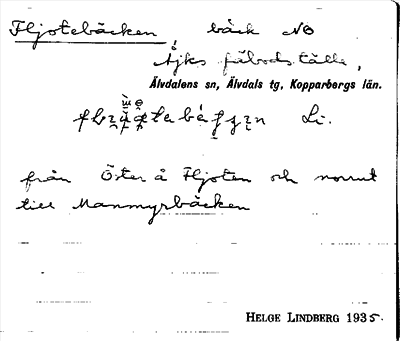 Fljotebäcken, bäck NO
Åjks fäbodställe,
Älvdalens sn, Älvdals tg, Kopparbergs län.
Li.
från Öster å Fljoten och norrut
till Manmyrbäcken
HELGE LINDBERG 1935.